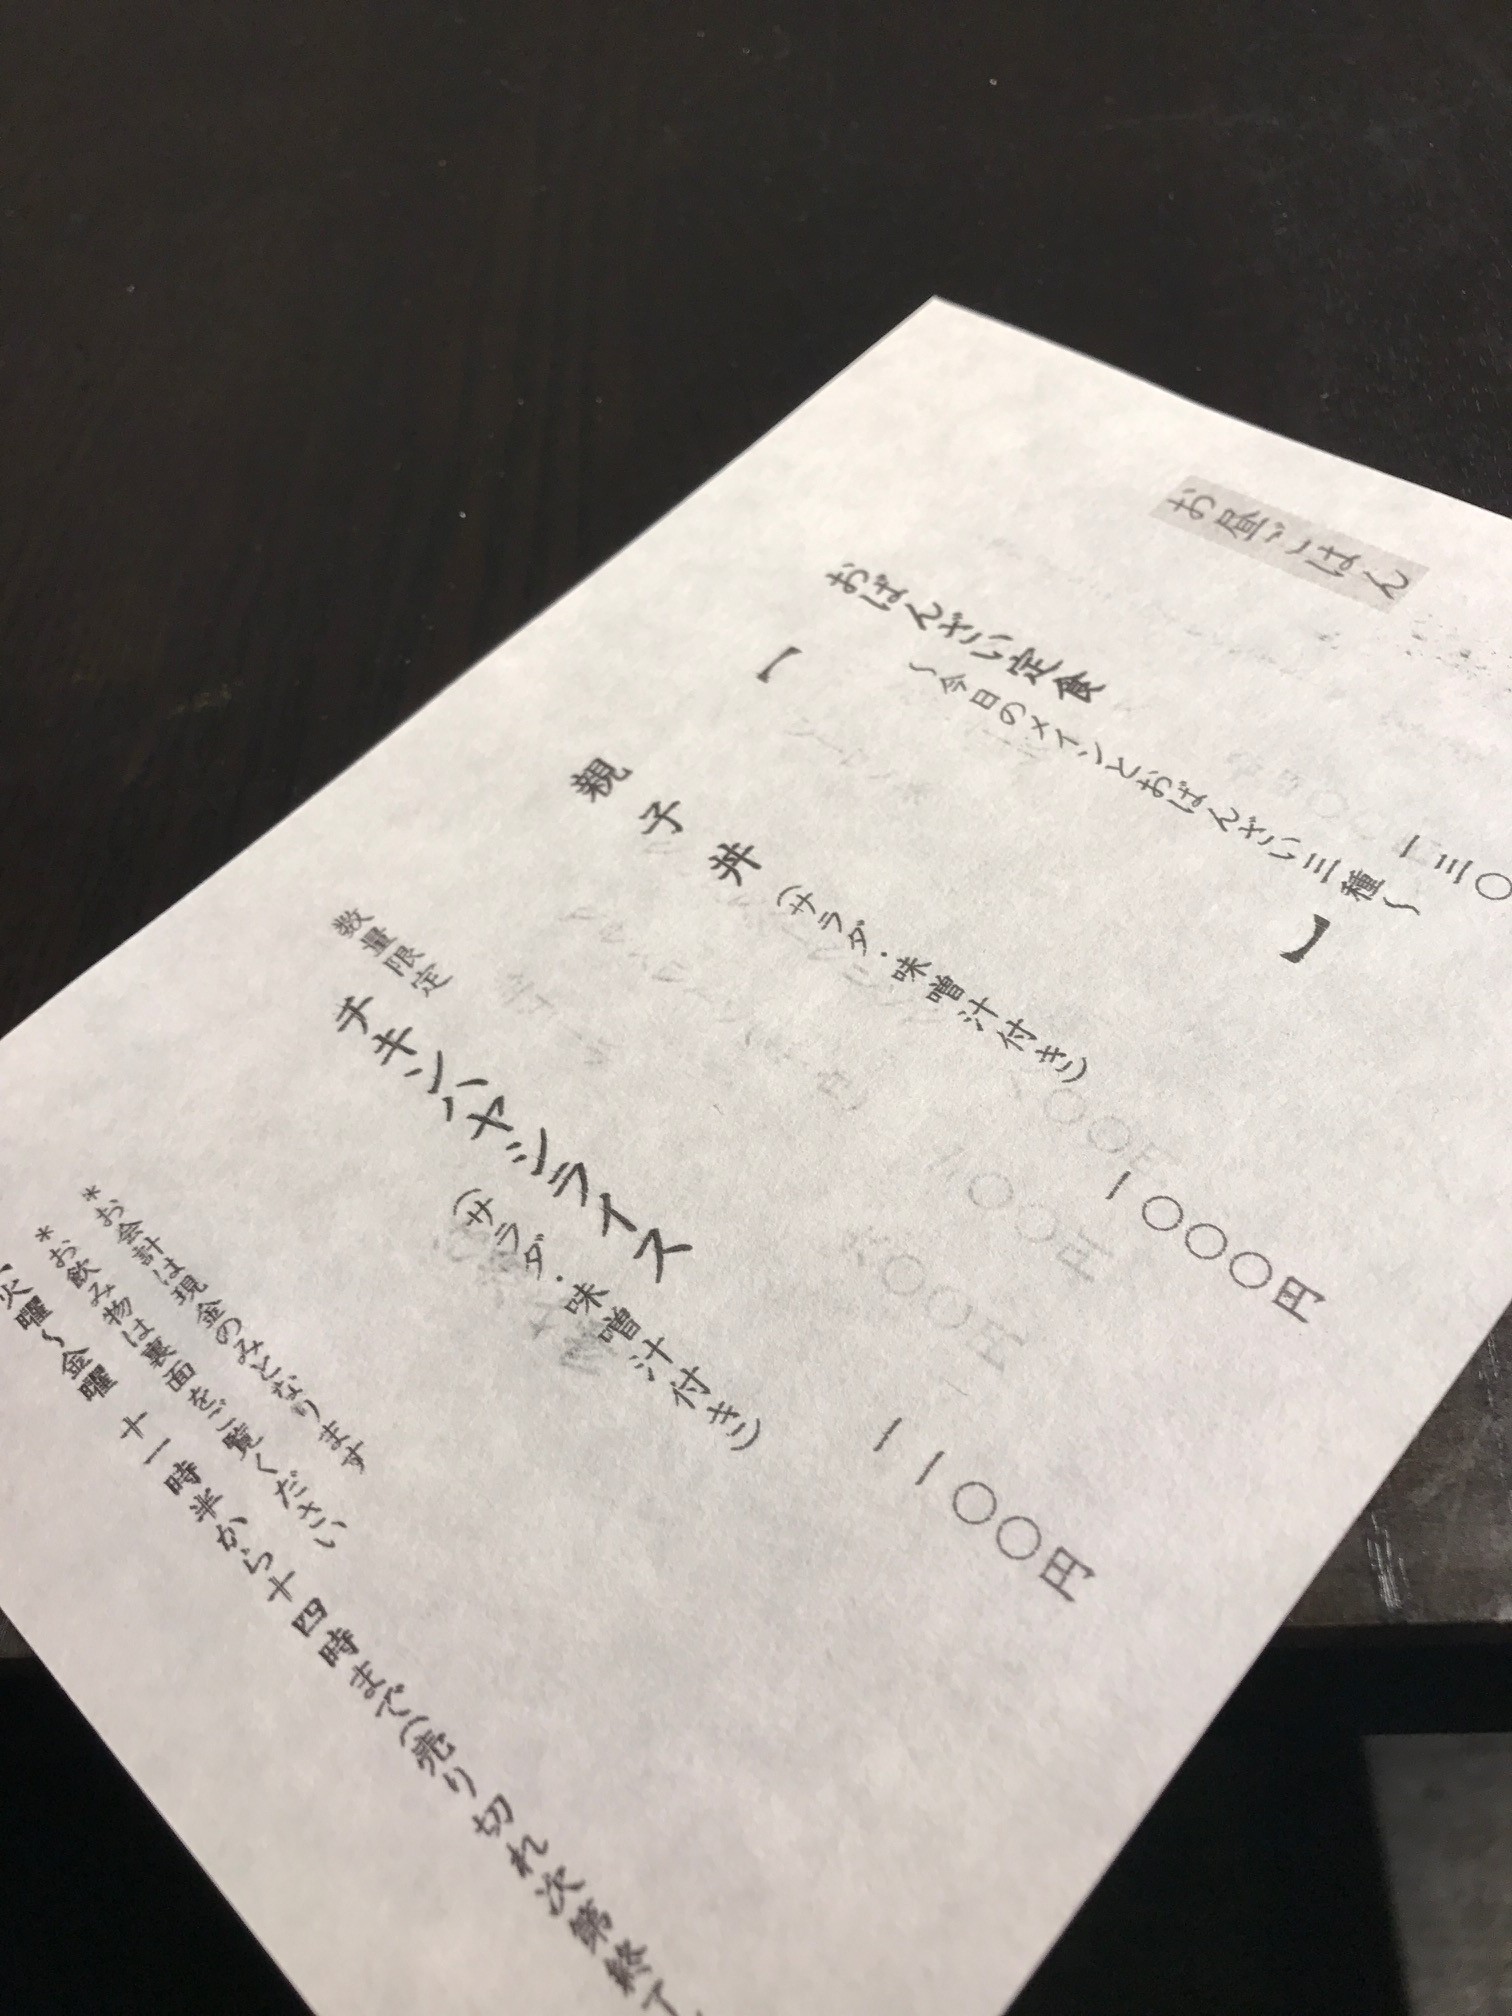 お昼ごはん
おばんざい定食
～今日のメインとおばんざい三種～
一三〇
【 】
親子丼（サラダ・味噌汁付き）
一〇〇〇円
数量限定
チキンハヤシライス
（サラダ・味噌汁付き）
一一〇〇円
*お会計は現金のみとなります
*お飲み物は裏面をご覧ください
火曜～金曜 十一時半から十四時まで（売り切れ次第終了